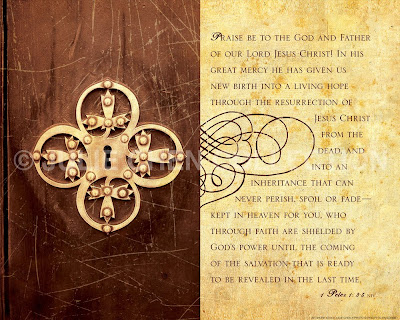 Praise be to the God and Father
of our Lord Jesus Christ! In his
great mercy he has given us
new birth into a living hope
through the resurrection of
Jesus Christ
from the
dead, and
into an
inheritance that can
never perish, spoil or fade—
kept in heaven for you, who
through faith are shielded by
God's power until the coming
of the salvation that is ready
to be revealed in the last time.
1 Peter 1: 3-5 NIV